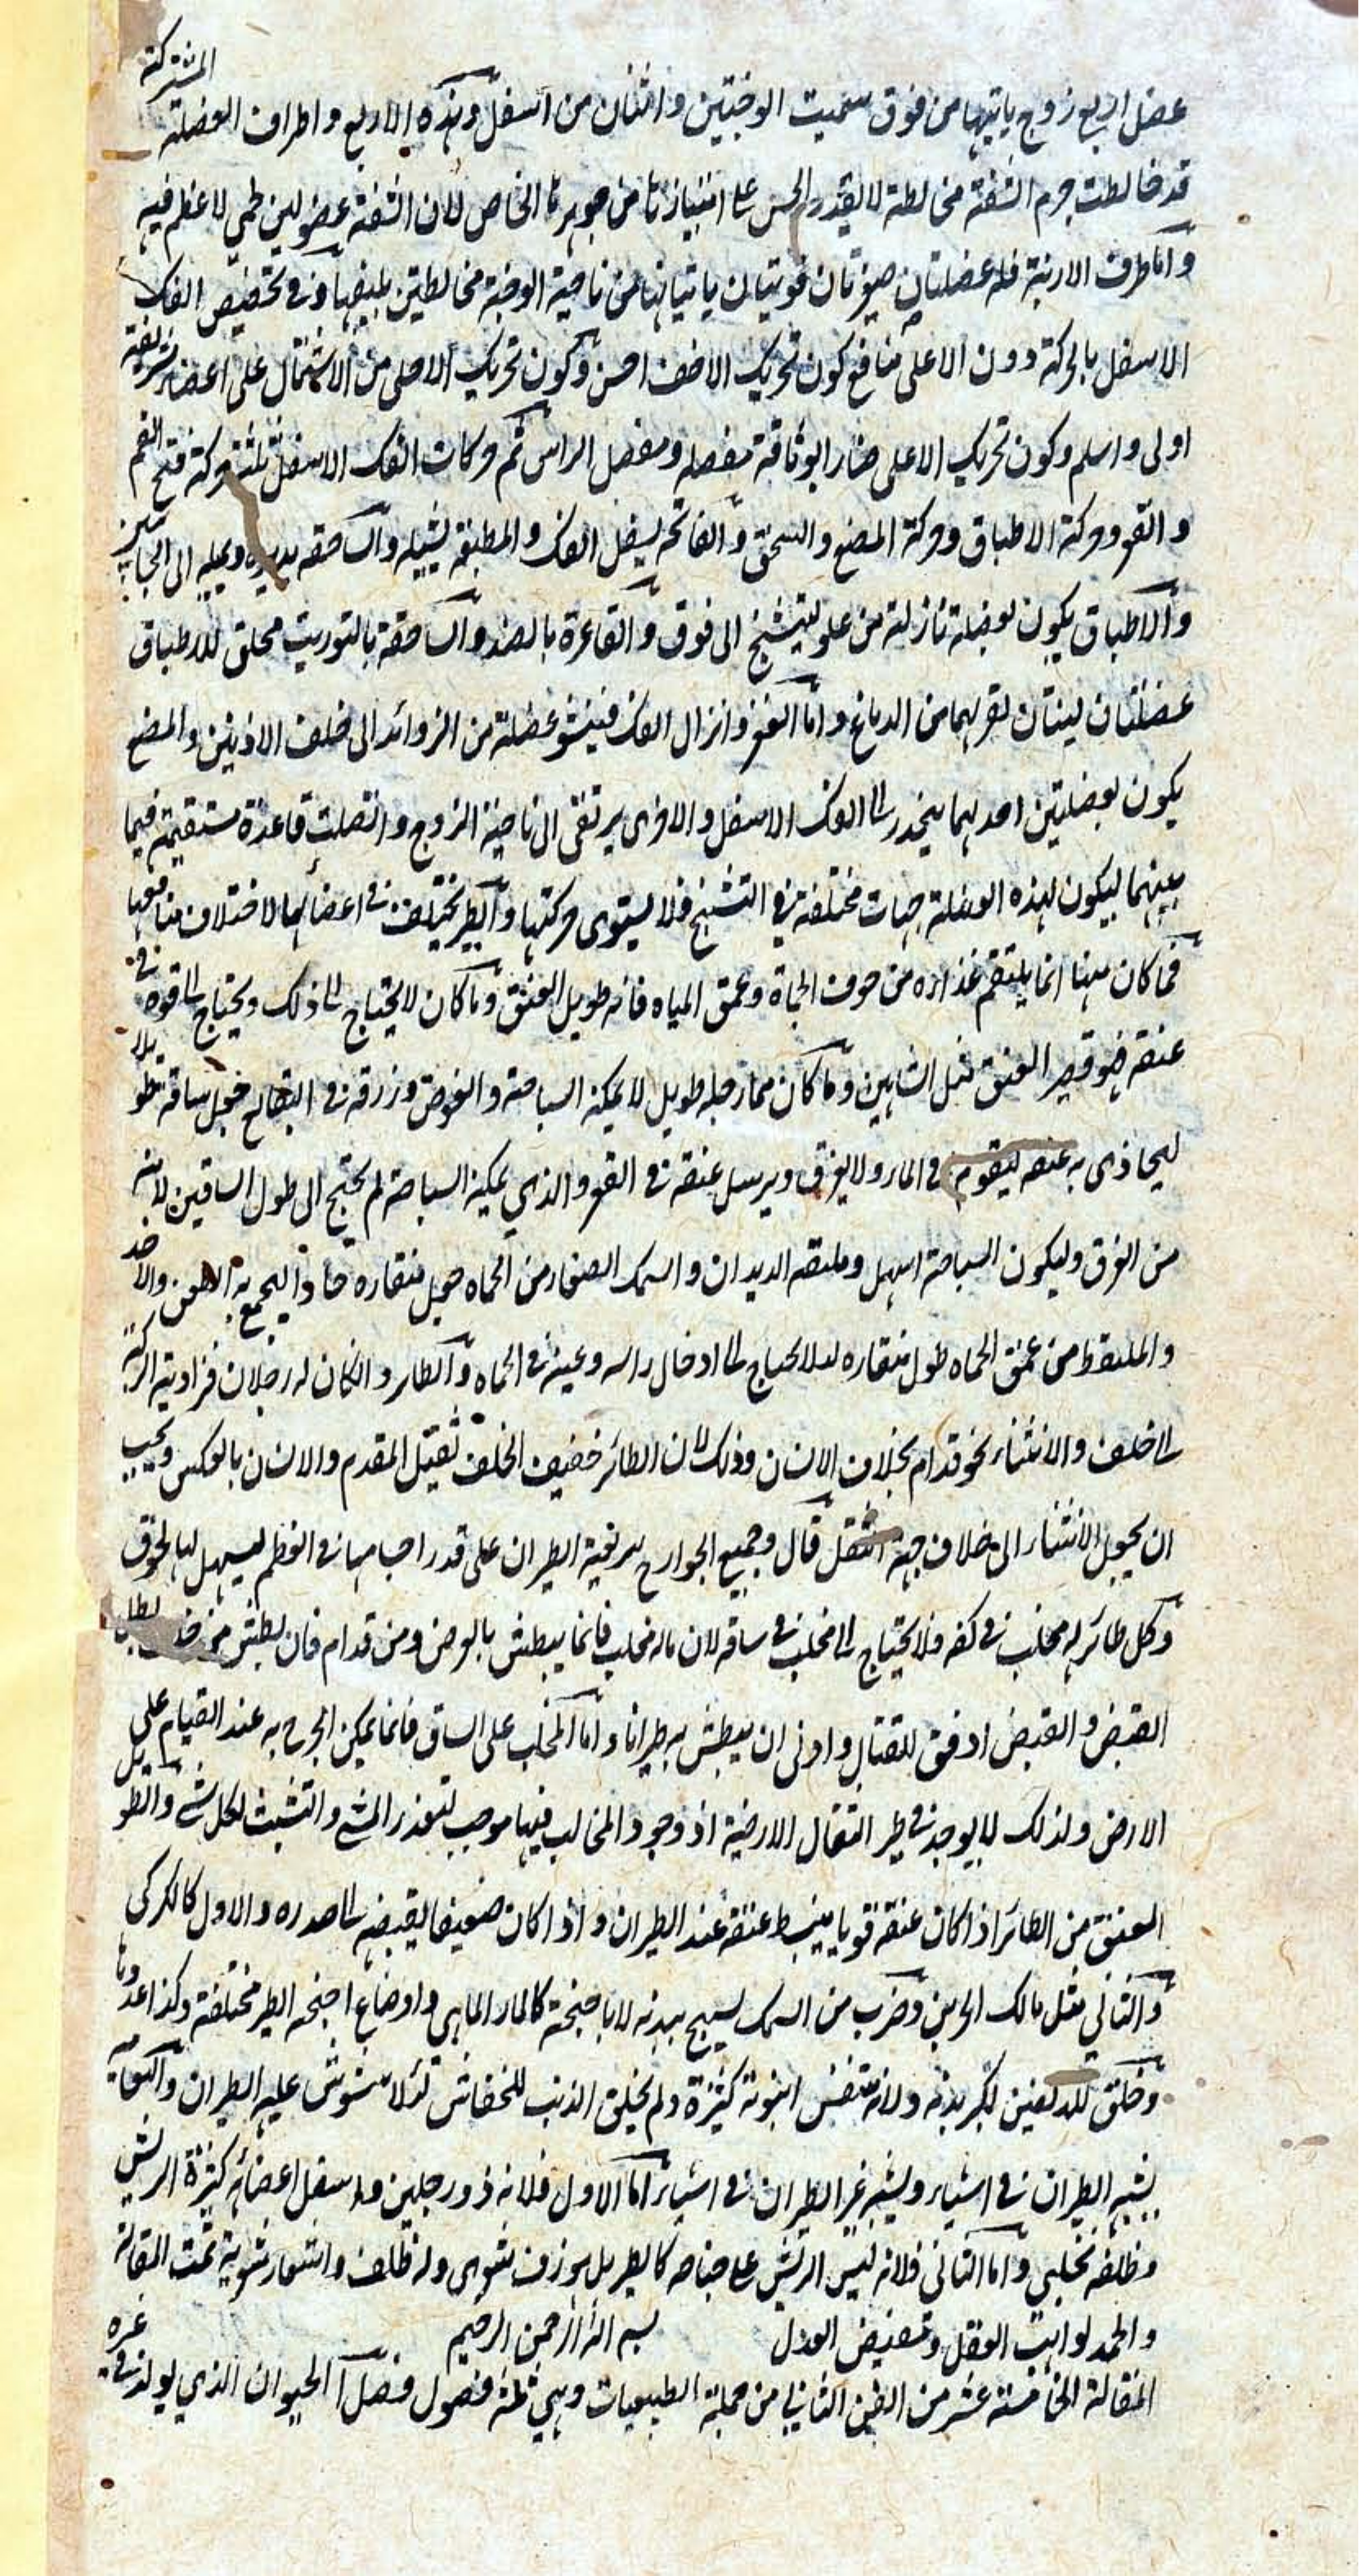 المشتركة
عضل اربع زوج ياتيها من فوق سميت الوجنتين واثنان من اسفل وهذه الاربع واطراف العضلة
قد خالطت جرم الشفة مخالطة لا يقدر الحس على امتيازها من جوهرها الخاص لان الشفة عضو لين لحمي لا عظم فيه
واما طرف الارنبة فله عضلتان صغيرتان قويتان ياتيانها من ناحية الوجنة مخالطتين بليفها وفي تخصيص الفك
الاسفل بالحركة دون الاعلى منافع كون تحريك الاخف احسن وكون تحريك الاخلى من الاشتمال على اعضاء شريفة
اولى واسلم وكون تحريك الاعلى ضارا بوثاقة مفصله ومفصل الراس ثم حركات الفك الاسفل ثلثة حركة فتح الفم
والفغر وحركة الاطباق وحركة المضغ والسحق والفاتحة يسفل الفك والمطبقة يشيله والساحقة يديره ويميله الى الجانبين
والاطباق يكون بعضلة نازلة من علو يتشنج الى فوق والفاغرة بالضد والساحقة بالتوريب فخلق للاطباق
عضلتان لينتان لقربهما من الدماغ واما الفغر وانزال الفك فينشو عضلة من الزوائد الى خلف الاذنين والمضغ
يكون بعضلتين احديهما ينحدر الى الفك الاسفل والاخرى يرتقى الى ناحية الزوج واتصلت قاعدة مستقيمة فيما
بينهما ليكون لهذه العضلة جهات مختلفة في التشنج فلا يستوى حركتها والطير يختلف في اعضائها لاختلاف منافعها
فما كان منها انما يلتقم غذاءه من جوف الحماة وعمق المياه فانه طويل العنق وما كان لا يحتاج الى ذلك ويحتاج الى قوة في
عنقه فهو قصير العنق مثل الشاهين وما كان مما رجله طويل لا يمكنه السباحة والغوص ورزقه في البطايح فجعل ساقه طويلا
ليحاذى به عنقه ليقوم في الماء ولا يغرق ويرسل عنقه في القعر والذي يمكنه السباحة لم يحتج الى طول الساقين لامنه
من الغرق وليكون السباحة اسهل وملتقط الديدان والسمك الصغار من الحماه جعل منقاره حادا ليجمع به والاخذ
والملتقط من عمق الحماه طول منقاره لئلا يحتاج الى ادخال راسه وعينه في الحماه والطاير وان كان له رجلان فزاوية الركبة
الى خلف والانثناء نحو قدام بخلاف الانسان وذلك لان الطائر خفيف الخلف ثقيل المقدم والانسان بالعكس ويجب
ان يجعل الانثناء الى خلاف جهة الثقل قال وجميع الجوارح سريعة الطيران على قدر اجسامها في العظم ليسهل لها لحوق
وكل طائر له مخلب في كفه فلا يحتاج الى مخلب في ساقه لان ماله مخلب فانما يبطش بالعرض ومن قدام فان بطش من خلف بطل
القبض والقبض اوفق للقتال واولى ان يبطش به طيرانا واما المخلب على الساق فانما يمكن الجرح به عند القيام على
الارض ولذلك لا يوجد في طير الثقال الارضية اذ وجود المخالب فيها موجب لتعذر المشي والتشبث بكل شيء والطويل
العنق من الطائر اذا كان عنقه قويا يبسط عنقه عند الطيران واذا كان ضعيفا يقبضه الى صدره والاول كالكركي
والثاني مثل مالك الحزين وضرب من السمك يسبح ببدنه لا باجنحة كالمار الماهى واوضاع اجنحة الطير مختلفة وكذا عددها
وخلق للدلفين لكبر بدنه ولانه متنفس انبوبة كثيرة ولم يخلق الذنب للخفاش لئلا يشوش عليه الطيران والنعامة
يشبه الطيران في اشياء ويشبه غير الطيران في اشياء اما الاول فلانه ذو رجلين واسفل اعضائه كثيرة الريش
وظلفه مخلبي واما الثاني فلانه ليس الريش على جناحه كالطير بل هو زف شعرى وله ظلف واشعار شعرية تمت المقالة
والحمد لواهب العقل ومفيض العدل بسم الله الرحمن الرحيم
المقالة الخامسة عشر من الفن الثاني من جملة الطبيعيات وهي ثلثة فصول فصل آ الحيوان الذي يولد في غيره